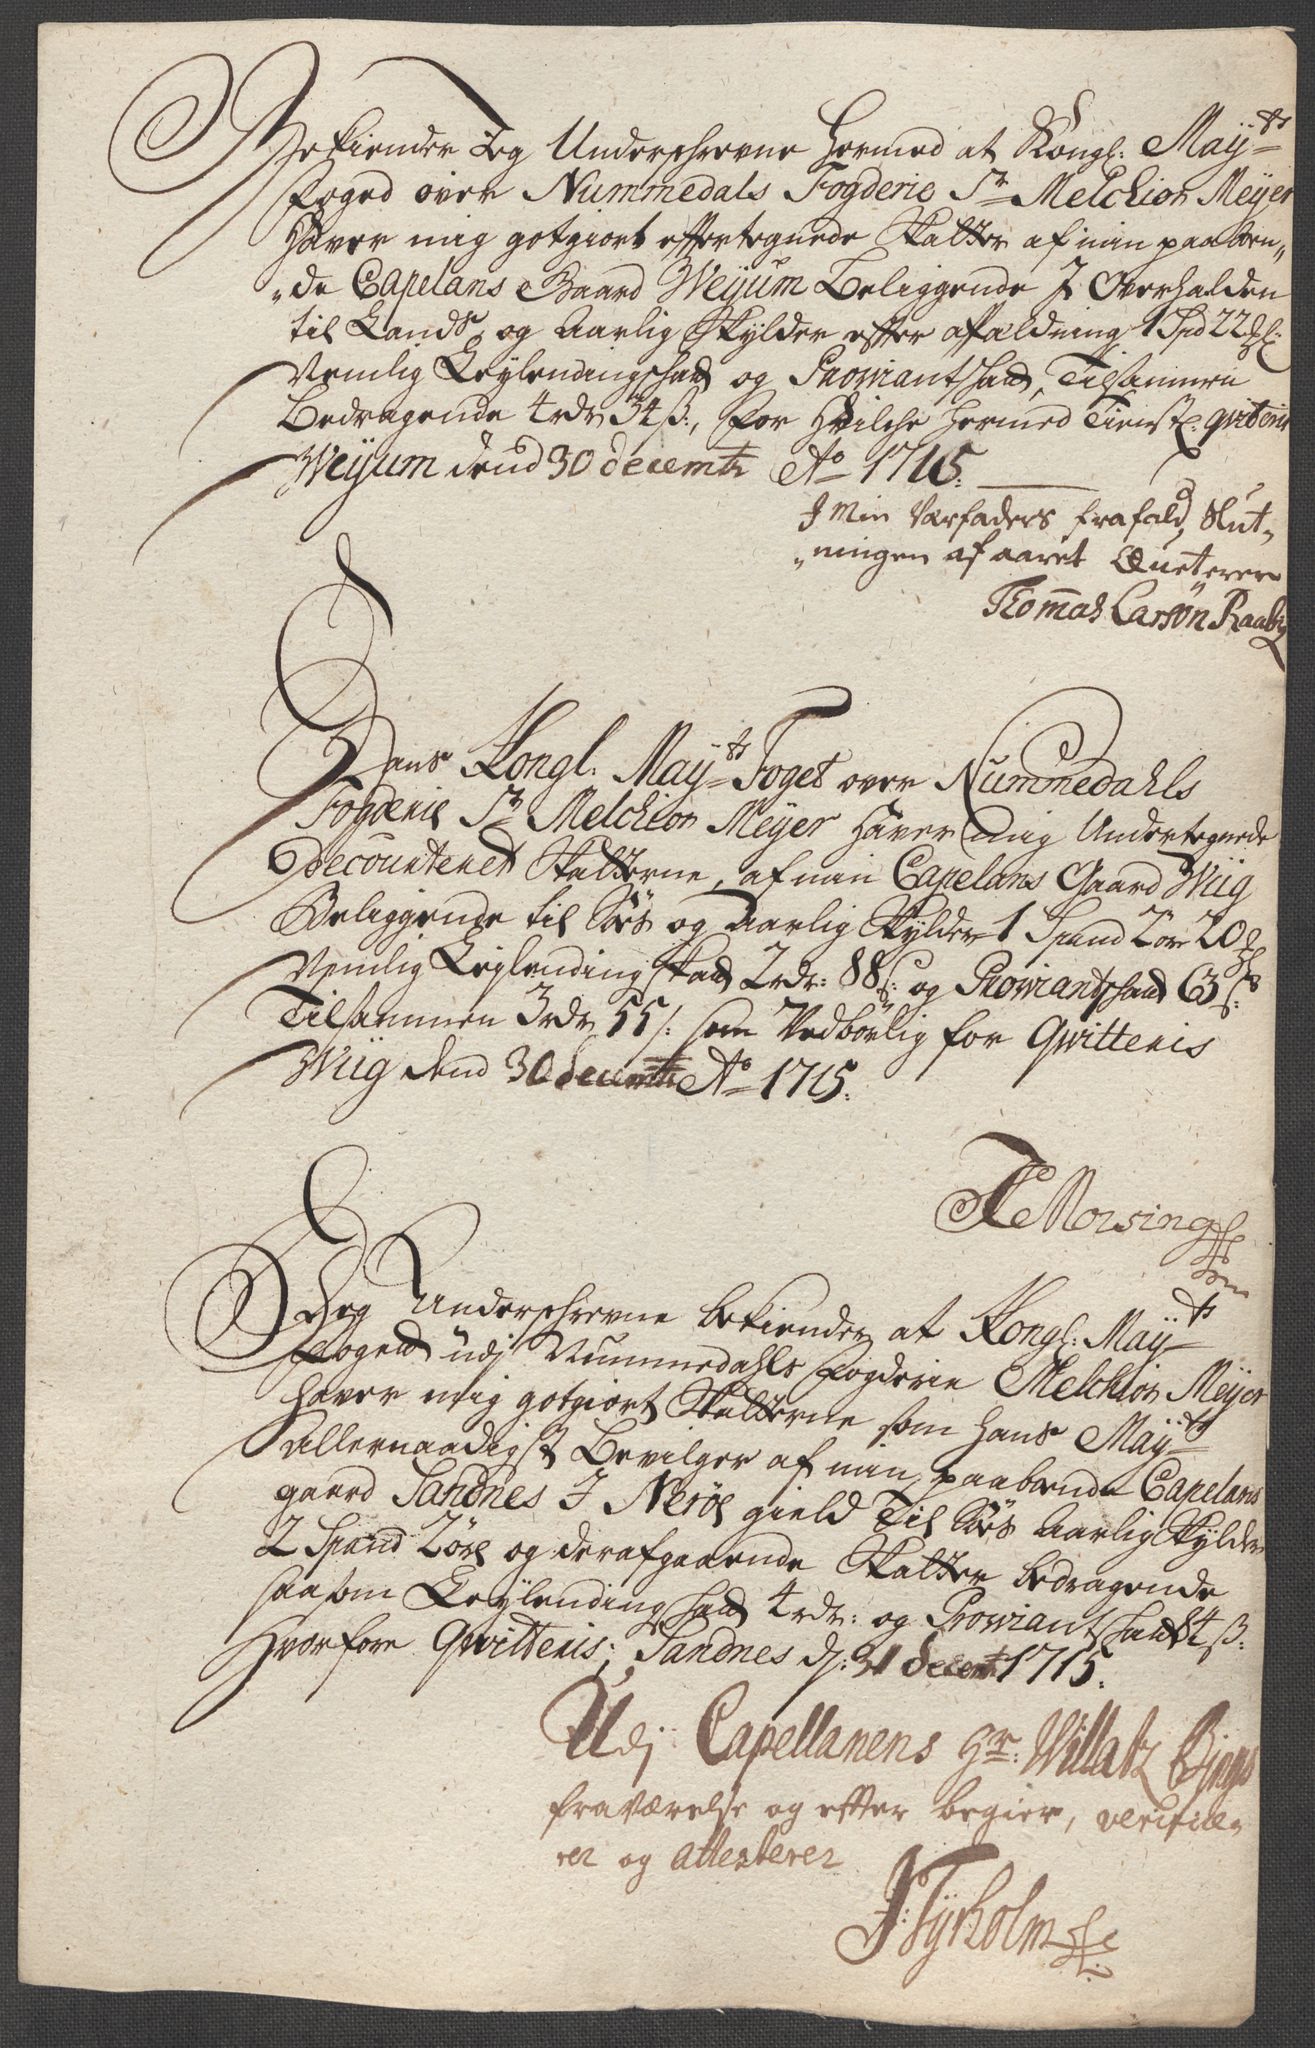 Bekiender Jeg Underschrevne hermed at Kongl: Maÿts
Foged over Nummedals Fogderie Sr Melchior Meÿer
Haver mig gotgiort effterregnede Skatter af min paaboen„
„de Capelans Gaard Weÿum Beliggende J Overhalden
til Lands, og Aarlig Skylder efter affeldning 1 Spd 22 ℔:
Nemlig Leÿlendingschatt og Proviantschatt, Tilsammen
Bedragende 4 rdr 34 ß:, for Hvilche hermed Tienstl: qviteris
Weÿum dend 30 decembr Ao 1715.
J Min Værfaders frafald, Slut„
„ningen af aaret Qveterer
Thomas Larsøn Raabÿ
Hans Kongl. Maÿts Foget over Nummedahls
Fogderie Sr Melchior Meÿer Haver mig Undertegnede
decourteret Skatterne, af min Capelans Gaard Wiig
Beliggende til Søes og Aarlig Skylder 1 Spand 2 ør 20 ℔
Nemlig Leÿlending skatt 2 rdr: 88 ß: og Proviantschatt 63 ß:
Tilsammen 3 rdr 55 ß: som Vedbørlig for Qvitteris
Wiig dend 30 decembr Ao 1715.
Morsing
Jeg Underschrevne bekiender at Kongl: Maÿts
Fogett udj Nummedahls Fogderie Melchior Meÿer
haver mig gotgiort Skatterne som Hans Maÿts
Allernaadigst Bevilger af min paaboende Capelans
gaard Sandnes J Nerøe gield Til Søes Aarlig Skylder
2 Spand 2 øre og derafgaaende Skatter bedragende
saasom Leÿlending schatt 4 rdr: og Proviantschatt 84 ß:
Hvorfore Qvitteris; Sandnes d: 31 decembr 1715.
Udj Capellanens Hr: Willatz Bÿngs
fraværelse og efter begier, verificie„
rer og attesterer
J: Tÿrholm